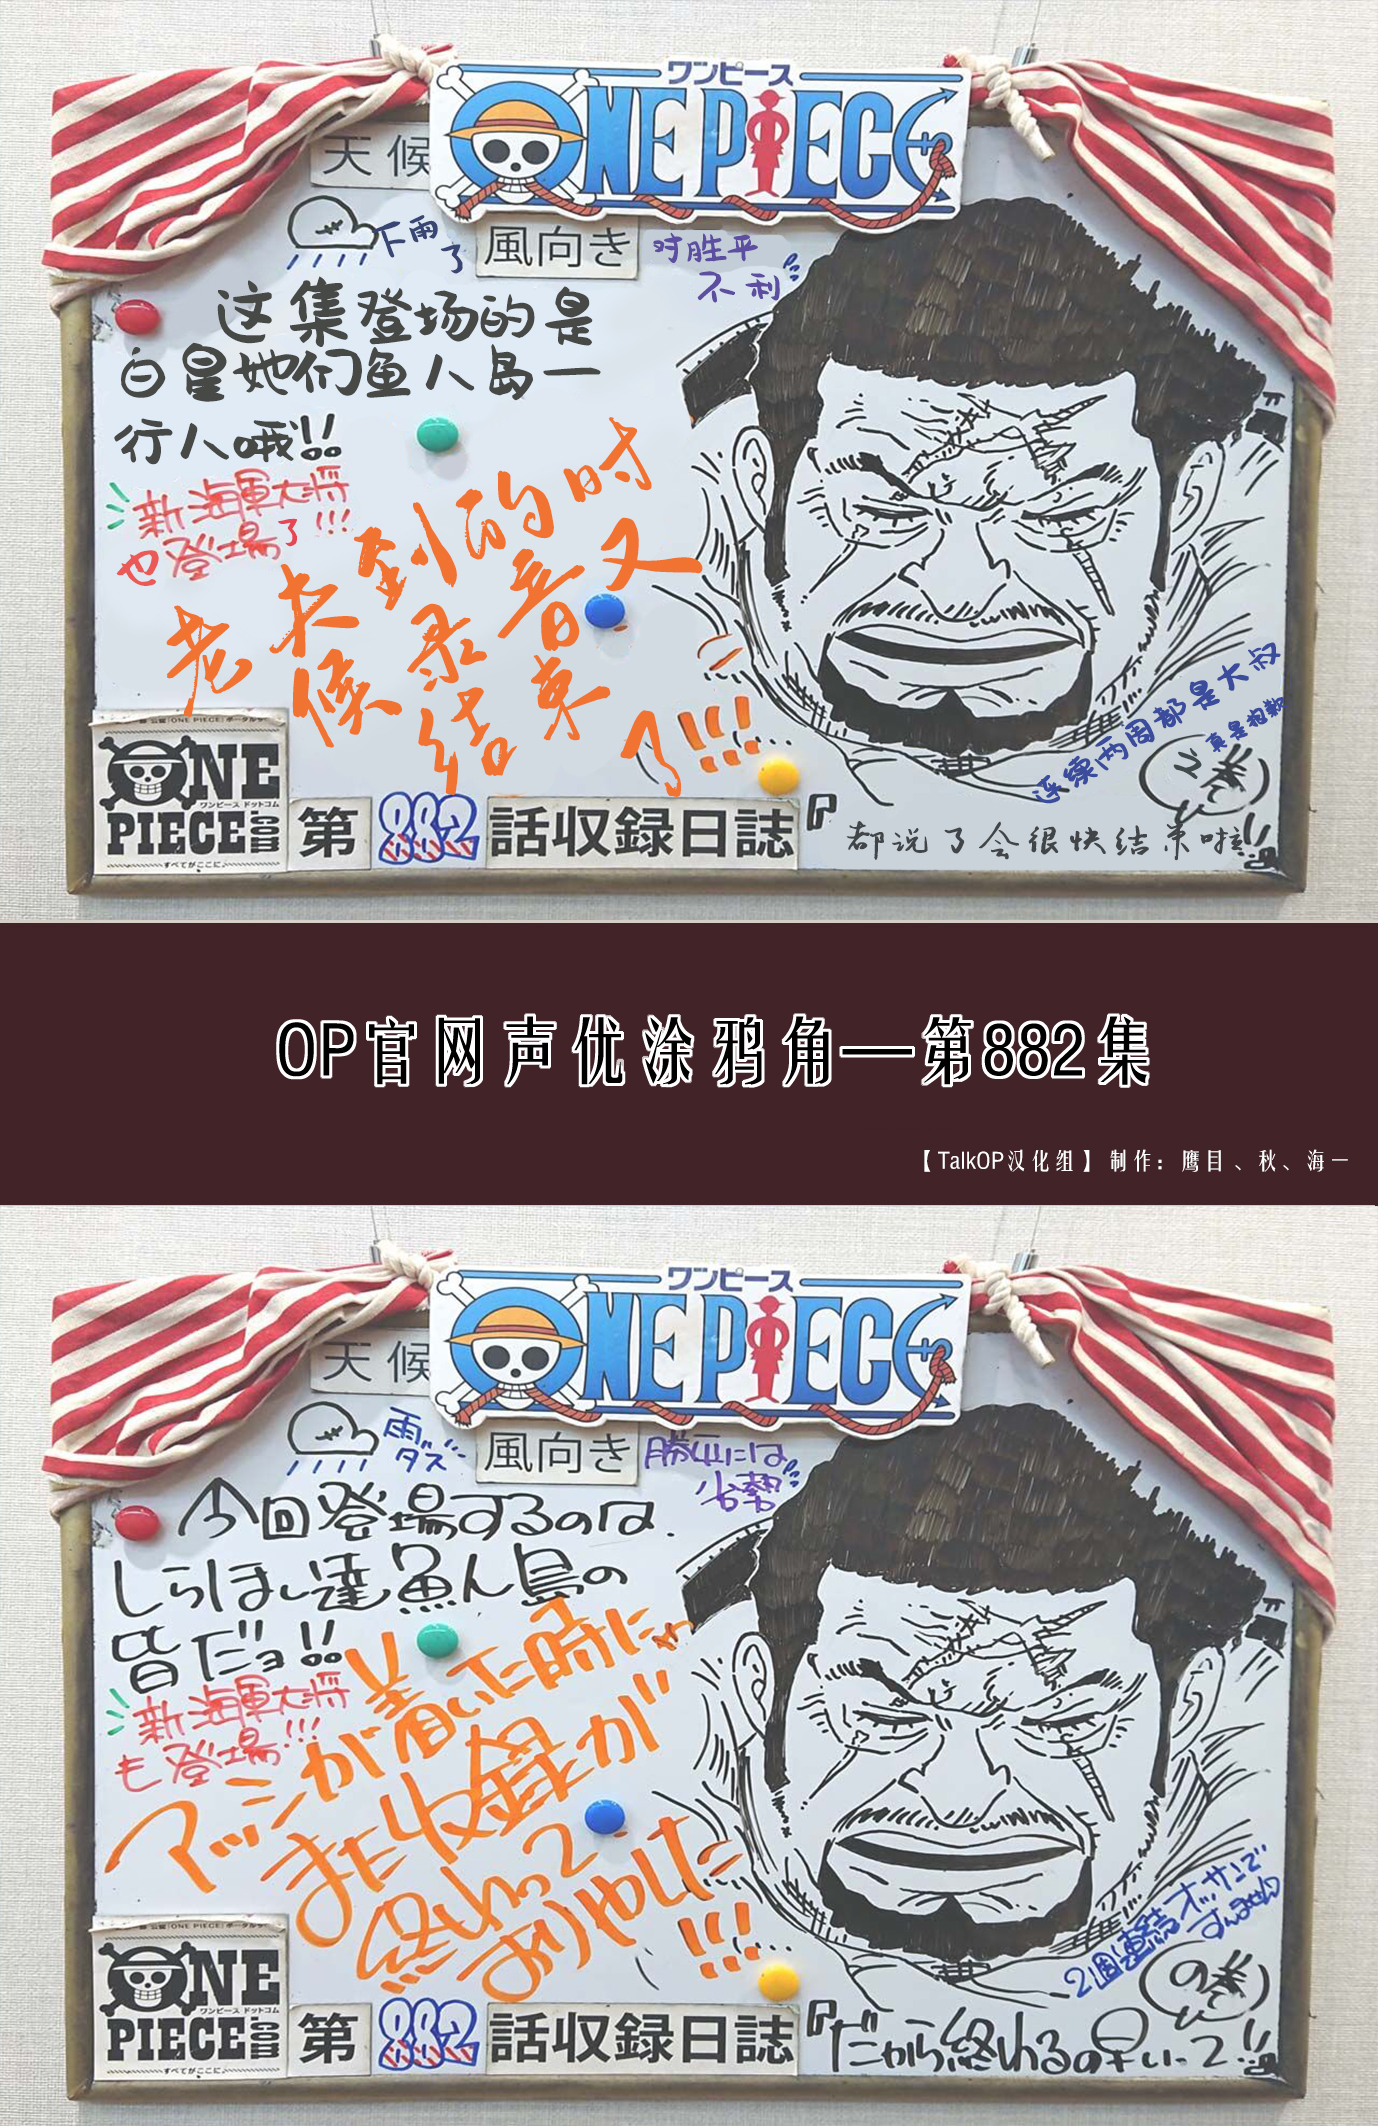 ワンピース
ONE PIECE
天候
下雨
了
風向き
对胜平
不利
这集登场的是
白星她们鱼人岛一
行人哦!!
新海軍大将
也登場了!!!
老夫到的时
候录音又
结束
了!!!
连续两周都是大叔
真是抱歉
之巻
ONE
ワンピース ドットコム
PIECE.com
すべてがここに
第882話収録日誌
『都说了会很快结束啦!!』
OP官网声优涂鸦角—第882集
【TalkOP汉化组】制作：鹰目、秋、海一
ワンピース
ONE PIECE
天候
雨
ダズー
風向き
勝平には
劣勢
今回登場するのは、
しらほし達魚人島の
皆だョ!!
新海軍大将
も登場!!!
アッシが着いた時にゃっ
また収録が
終わって
おりやした
!!!
2週連続オッサンで
すんません
の巻
ONE
ワンピース ドットコム
PIECE.com
すべてがここに
第882話収録日誌
『だから終わるの早いって!!』